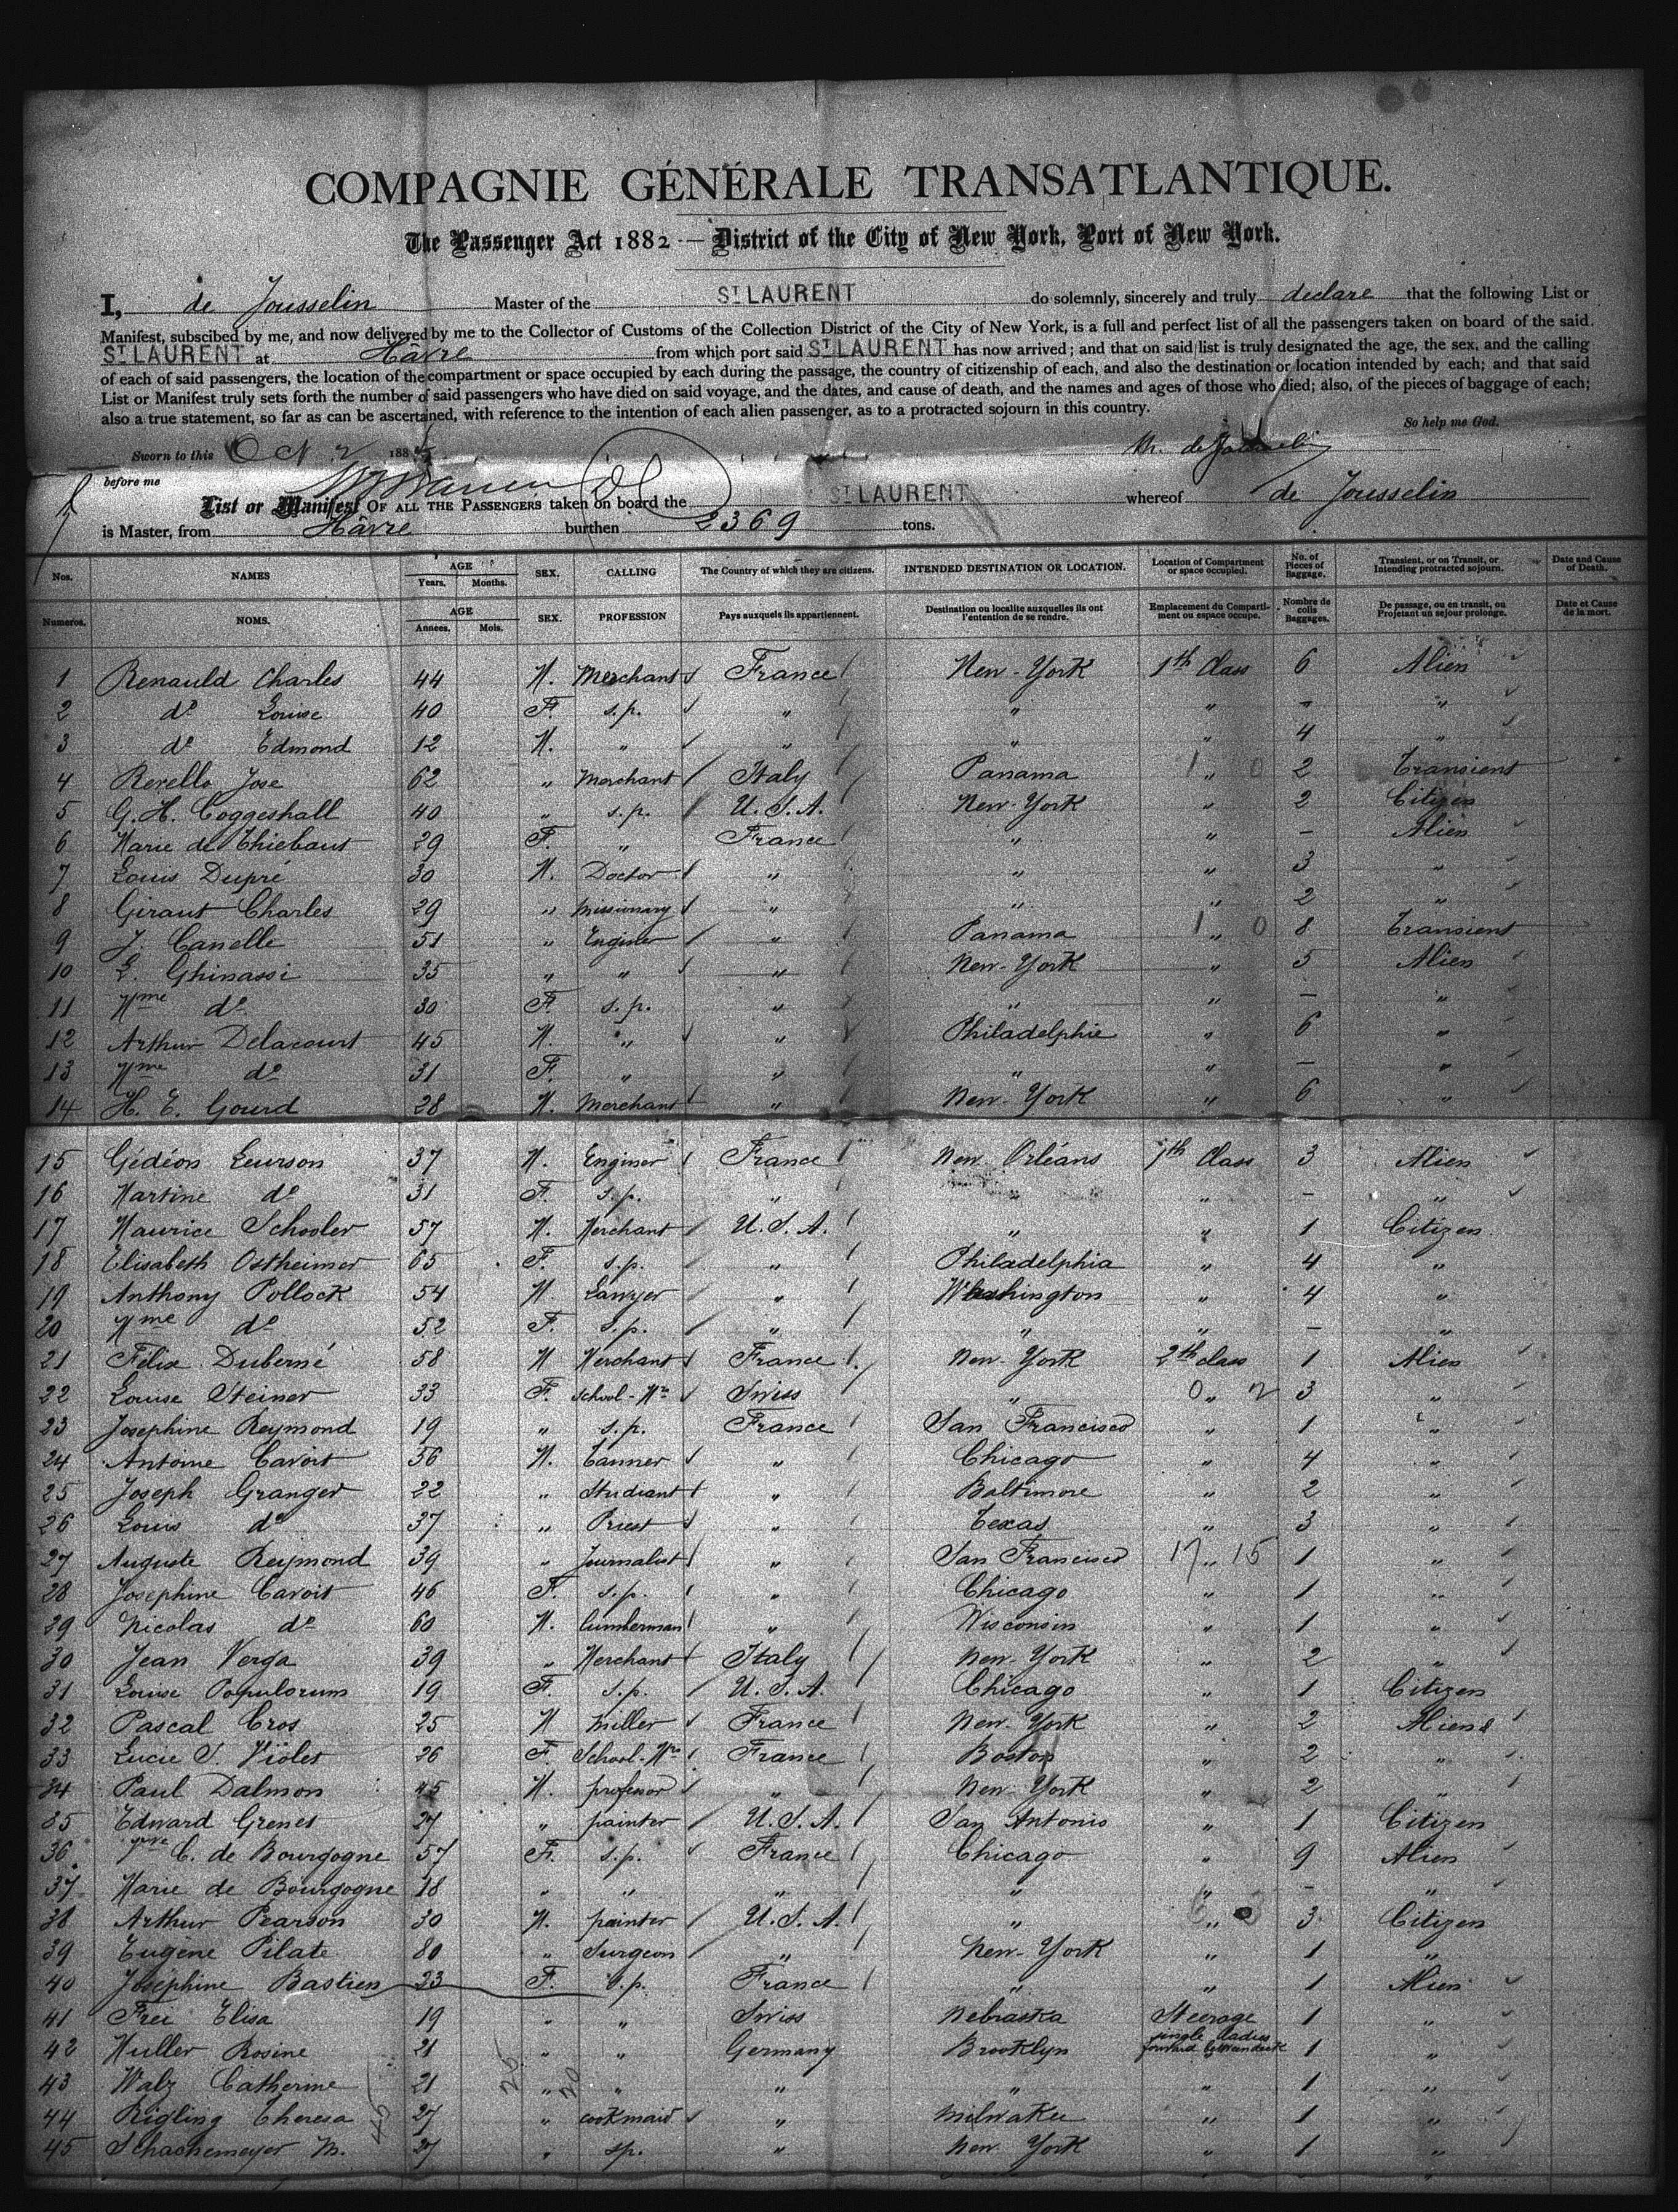 COMPAGNIE GÉNÉRALE TRANSATLANTIQUE.
The Passenger Act 1882 — District of the City of New York, Port of New York.
I, de Jousselin Master of the ST LAURENT do solemnly, sincerely and truly declare that the following List or
Manifest, subscibed by me, and now delivered by me to the Collector of Customs of the Collection District of the City of New York, is a full and perfect list of all the passengers taken on board of the said.
ST LAURENT at Hâvre from which port said ST LAURENT has now arrived; and that on said list is truly designated the age, the sex, and the calling
of each of said passengers, the location of the compartment or space occupied by each during the passage, the country of citizenship of each, and also the destination or location intended by each; and that said
List or Manifest truly sets forth the number of said passengers who have died on said voyage, and the dates, and cause of death, and the names and ages of those who died; also, of the pieces of baggage of each;
also a true statement, so far as can be ascertained, with reference to the intention of each alien passenger, as to a protracted sojourn in this country.
So help me God.
Sworn to this Oct 2 188
M. de Jousselin
before me
List or Manifest OF ALL THE PASSENGERS taken on board the ST LAURENT whereof de Jousselin
is Master, from Hâvre burthen 2369 tons.
Nos. NAMES AGE Years. Months. SEX. CALLING The Country of which they are citizens. INTENDED DESTINATION OR LOCATION. Location of Compartment or space occupied. No. of Pieces of Baggage. Transient, or on Transit, or Intending protracted sojourn. Date and Cause of Death.
Numeros. NOMS. AGE Annees. Mois. SEX. PROFESSION Pays auxquels ils appartiennent. Destination ou localite auxquelles ils ont l'entention de se rendre. Emplacement du Comparti-ment ou espace occupe. Nombre de colis Baggages. De passage, ou en transit, ou Projetant un sejour prolonge. Date et Cause de la mort.
1 Renauld Charles 44 M. Merchant France New-York 1th Class 6 Alien
2 do Louise 40 F. s.p. " " " - "
3 do Edmond 12 M. " " " " 4 "
4 Revello Jose 62 " Merchant Italy Panama " 2 Transient
5 G. H. Coggeshall 40 " s.p. U.S.A. New-York " 2 Citizen
6 Marie de Thiebaut 29 F. " France " " - Alien
7 Louis Dupré 30 M. Doctor " " " 3 "
8 Giraut Charles 29 " Missionary " " " 2 "
9 J. Canelle 51 " Enginer " Panama " 8 Transient
10 E. Ghinassi 35 " " " New-York " 5 Alien
11 Mme do 30 F. s.p. " " " - "
12 Arthur Delacourt 45 M. " " Philadelphie " 6 "
13 Mme do 31 F. " " " " - "
14 H. E. Gourd 28 M. Merchant " New-York " 6 "
15 Gédéon Leurson 37 M. Enginer France New Orléans 1th Class 3 Alien
16 Martine do 31 F. s.p. " " " - "
17 Maurice Schooler 57 M. Merchant U.S.A. " " 1 Citizen
18 Elisabeth Ostheimer 65 F. s.p. " Philadelphia " 4 "
19 Anthony Pollock 54 M. Lawyer " Washington " 4 "
20 Mme do 52 F. s.p. " " " - "
21 Félix Duberné 58 M Merchant France New-York 2th class 1 Alien
22 Louise Steiner 33 F. School-Ms Swiss " " 3 "
23 Josephine Reymond 19 " s.p. France San Francisco " 1 "
24 Antoine Cavoit 56 M. Tanner " Chicago " 4 "
25 Joseph Granger 22 " Studiant " Baltimore " 2 "
26 Louis do 37 " Priest " Texas " 3 "
27 Auguste Reymond 39 " Journalist " San Francisco 17 " 15 1 "
28 Josephine Cavoit 46 F. s.p. " Chicago " 1 "
29 Nicolas do 60 M. Lumberman " Wisconsin " 1 "
30 Jean Verga 39 " Merchant Italy New-York " 2 "
31 Louise Populorum 19 F. s.p. U.S.A. Chicago " 1 Citizen
32 Pascal Cros 25 M Miller France New-York " 2 Alien
33 Lucie S. Violet 26 F. School-Ms France Boston " 2 "
34 Paul Dalmon 45 M. professor " New-York " 2 "
35 Edward Grenet 27 " painter U.S.A. San Antonio " 1 Citizen
36 Vve C. de Bourgogne 57 F. s.p. France Chicago " 9 Alien
37 Marie de Bourgogne 18 " " " " " - "
38 Arthur Pearson 30 M. painter U.S.A. " " 3 Citizen
39 Eugène Pilate 80 " Surgeon " New-York " 1 "
40 Joséphine Bastien 23 F. s.p. France " " 1 Alien
41 Frei Elisa 19 " " Swiss Nebraska Steerage 1 "
42 Muller Rosine 21 " " Germany Brooklyn single ladies forward betweendeck 1 "
43 Walz Catherine 21 " " " " " 1 "
44 Rigling Theresa 27 " cookmaid " Milwakee " 1 "
45 Schachemeyer M. 27 " sp. " New York " 1 "